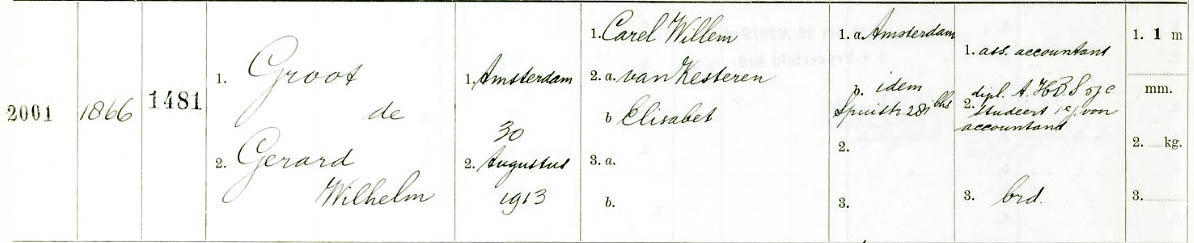 2001
1866
1481
1. Groot
de
2. Gerard
Wilhelm
1. Amsterdam
30
2. Augustus
1913
1. Carel Willem
2. a. van Kesteren
b Elisabet
3. a.
b.
1. a Amsterdam
b. idem
Spuistr 281 ᵇʰˢ
2.
3.
1. ass. accountant
dipl. A. HBS 5jc
2. studeert 1e j. voor
accountant
3. brd.
1. 1 m
mm.
2. kg.
3.